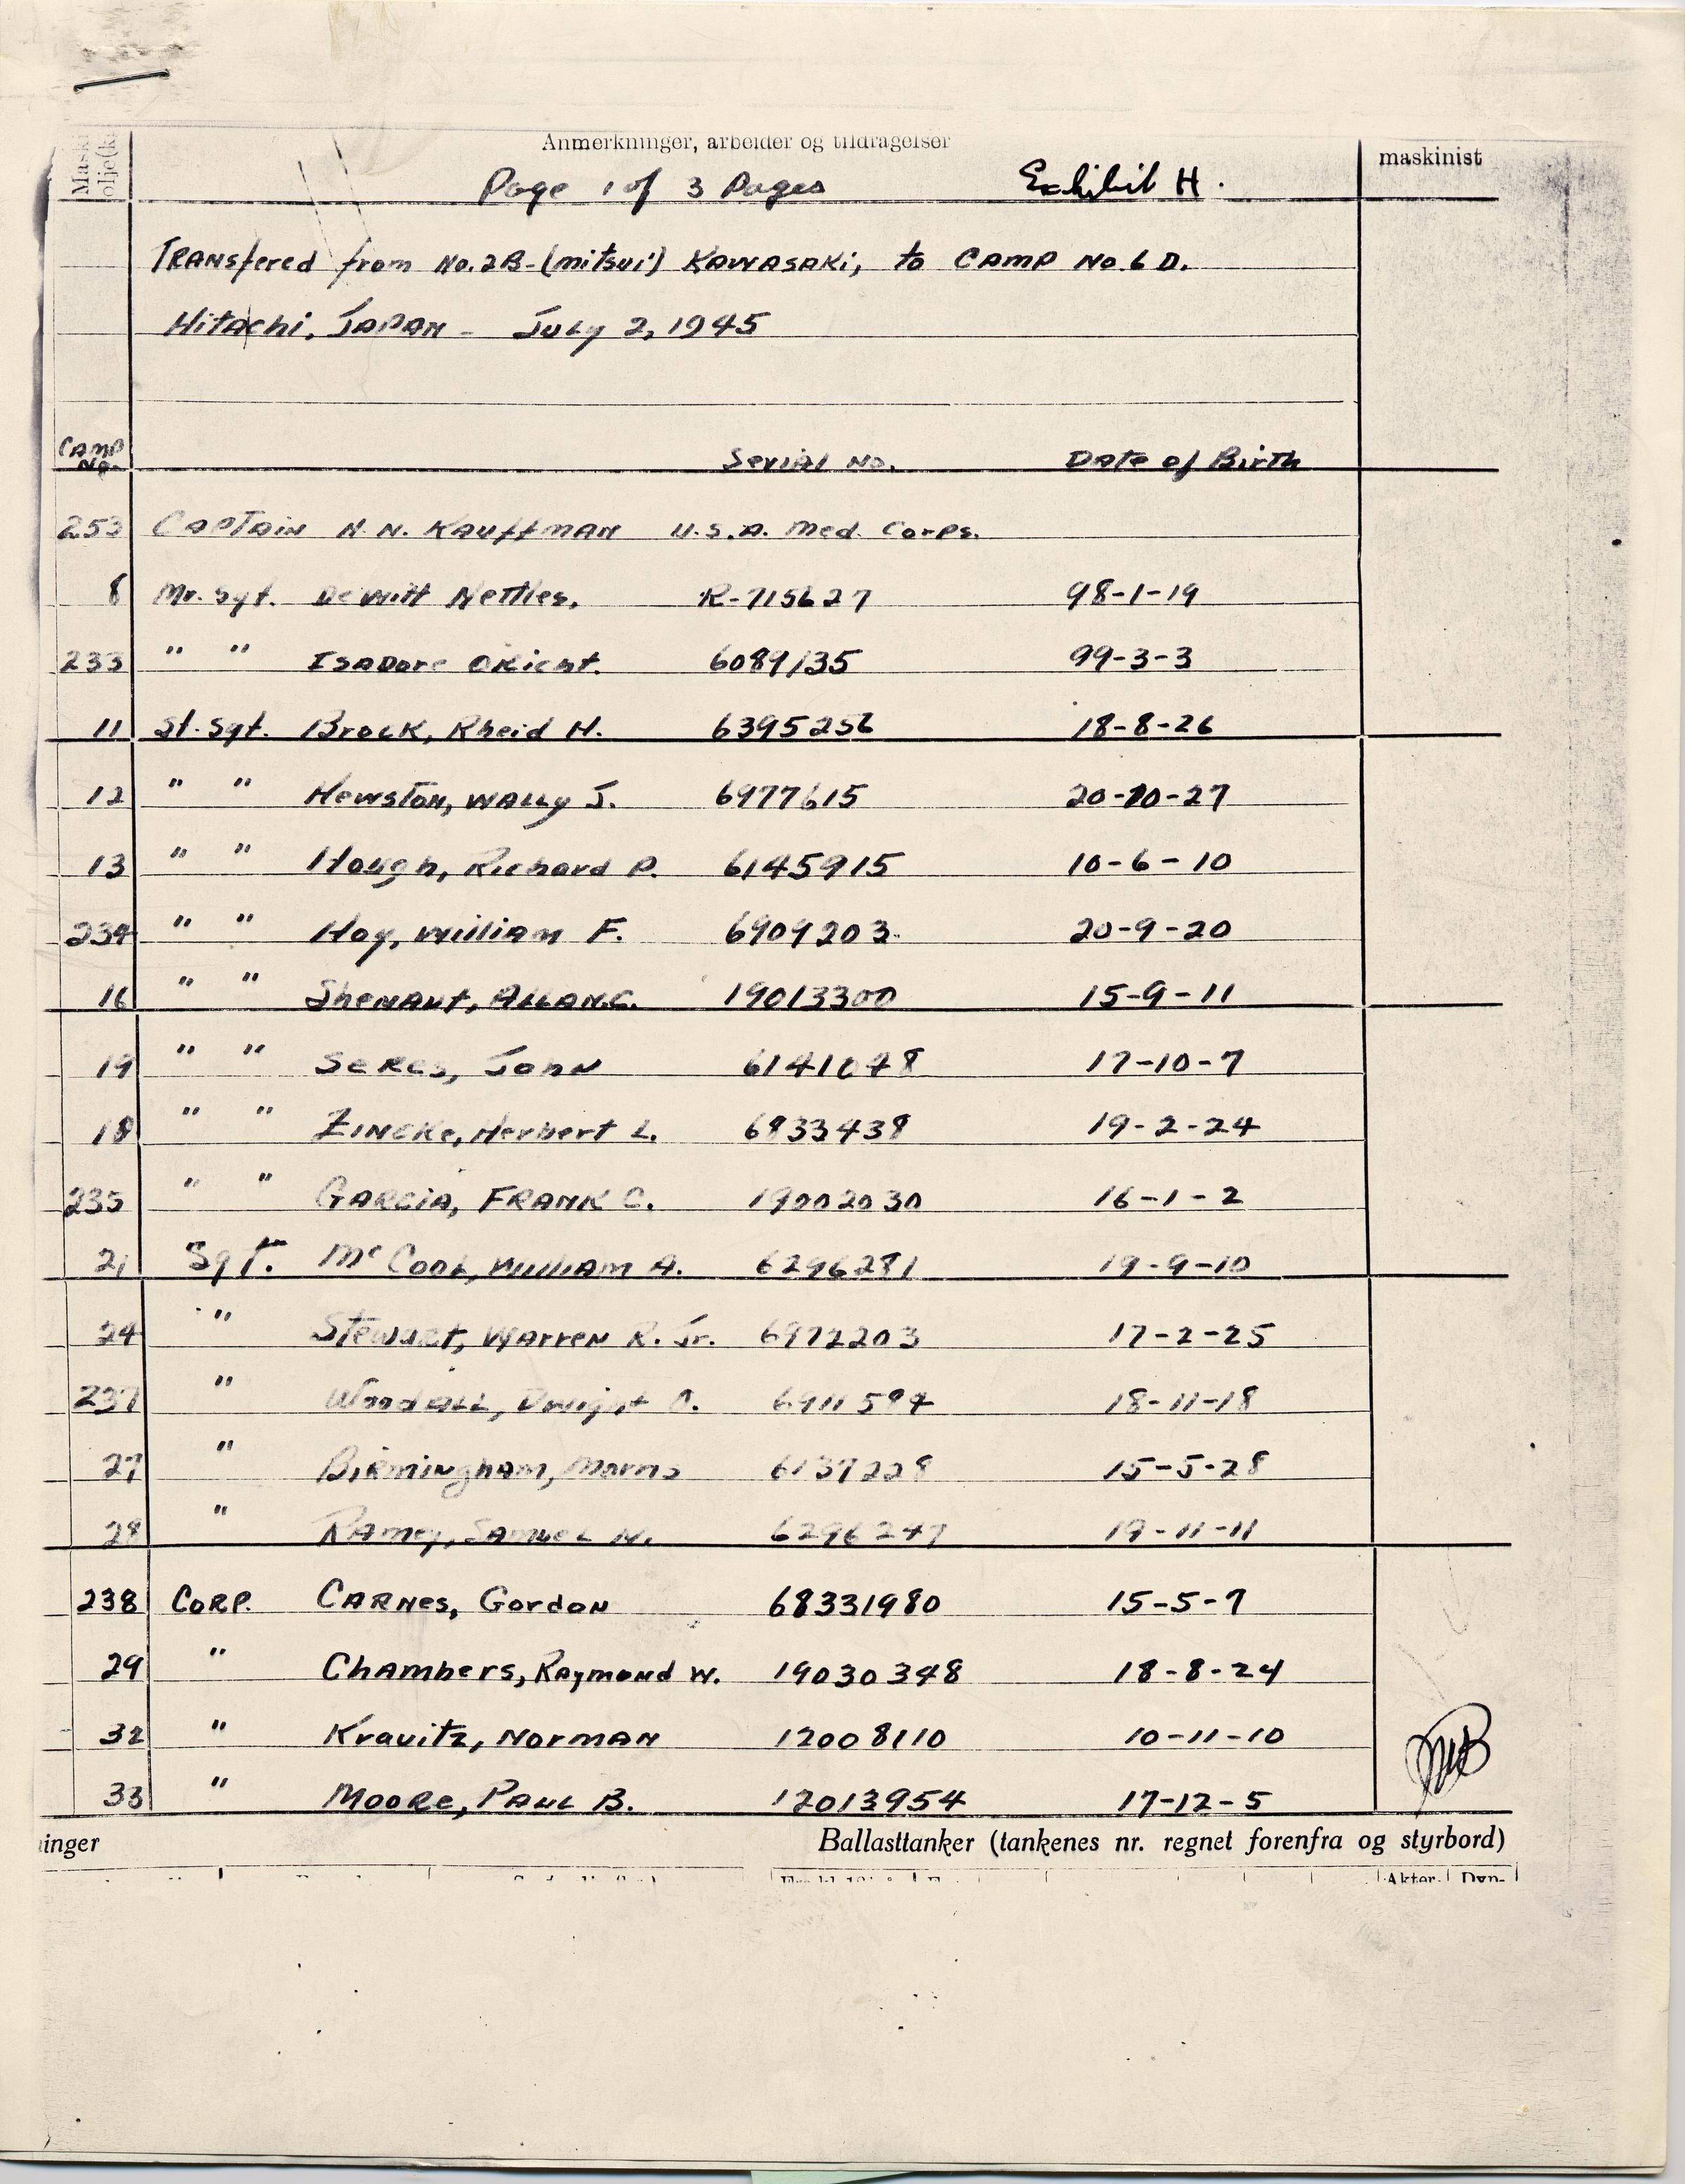 Maski
olje(k
Anmerkninger, arbeider og tildragelser
maskinist
Page 1 of 3 Pages Exhibit H.
TRANSfered from No. 2B-(mitsui) KAWASAKi, to CAMP No. 6 D.
HitAchi, JAPAN - July 2, 1945
CAMP No. Serial No. Date of Birth
253 CAPTAIN N. N. KAUffMAN U.S.A. Med. Corps.
8 Mr. Sgt. DeWitt Nettles. R-715627 98-1-19
233 " " ISADore OKient. 6089135 99-3-3
11 St. Sgt. Brock, Rheid H. 6395256 18-8-26
12 " " Hewston, WALLy J. 6977615 20-10-27
13 " " Hough, Richard P. 6145915 10-6-10
234 " " Hoy, William F. 6909203 20-9-20
16 " " SheNAUt, ALLAN.C. 19013300 15-9-11
19 " " SeKes, JohN 6141048 17-10-7
18 " " ZINCKe, Herbert L. 6833438 19-2-24
235 " " GARCIA, FRANK C. 19002030 16-1-2
21 Sgt. McCOOL, William A. 6296281 19-9-10
24 " Stewart, WArreN R. Jr. 6972203 17-2-25
237 " WoodALL, Dwight O. 6911594 18-11-18
27 " BiRmiNghAm, Morris 6137228 15-5-28
28 " RAmey, SAmueL N. 6296247 19-11-11
238 CORP. CARNes, GordoN 68331980 15-5-7
29 " ChAmbers, RAymoNd W. 19030348 18-8-24
32 " Kravitz, NormAN 12008110 10-11-10
33 " MOORe, PAUL B. 12013954 17-12-5
inger Ballasttanker (tankenes nr. regnet forenfra og styrbord)
Akter- Dyp-